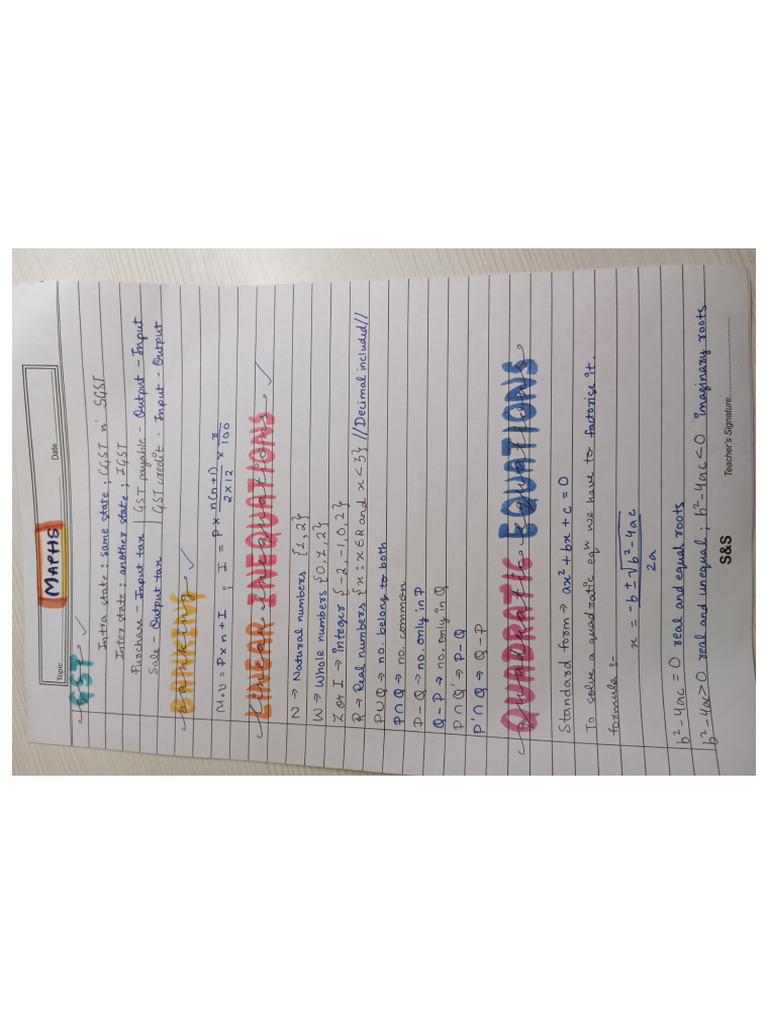 Topic
MAPHS
Date
GST
Intra state : same state ; CGST n' SGST
Inter state : another state ; IGST
Purchase - Input tax | GST payable - Output - Input
Sale - Output tax | GST credit - Input - Output
BANKING
M.V = P × n + I ; I = P × n(n+1)/2×12 × r/100
LINEAR INEQUATIONS
N → Natural numbers {1,2}
W → Whole numbers {0,1,2}
Z or I → integer {-2,-1,0,2}
R → Real numbers {x : x ∈ R and x < 3} //Decimal included//
P∪Q → no. belong to both
P∩Q → no. common
P-Q → no. only in P
Q-P → no. only in Q
P∩Q' → P-Q
P'∩Q → Q-P
QUADRATIC EQUATIONS
Standard form → ax² + bx + c = 0
To solve a quadratic eqⁿ we have to factorise it.
formula :-
x = -b ± √b²-4ac / 2a
b²-4ac = 0 real and equal roots
b²-4ac>0 real and unequal ; b²-4ac<0 imaginary roots
S&S
Teacher's Signature